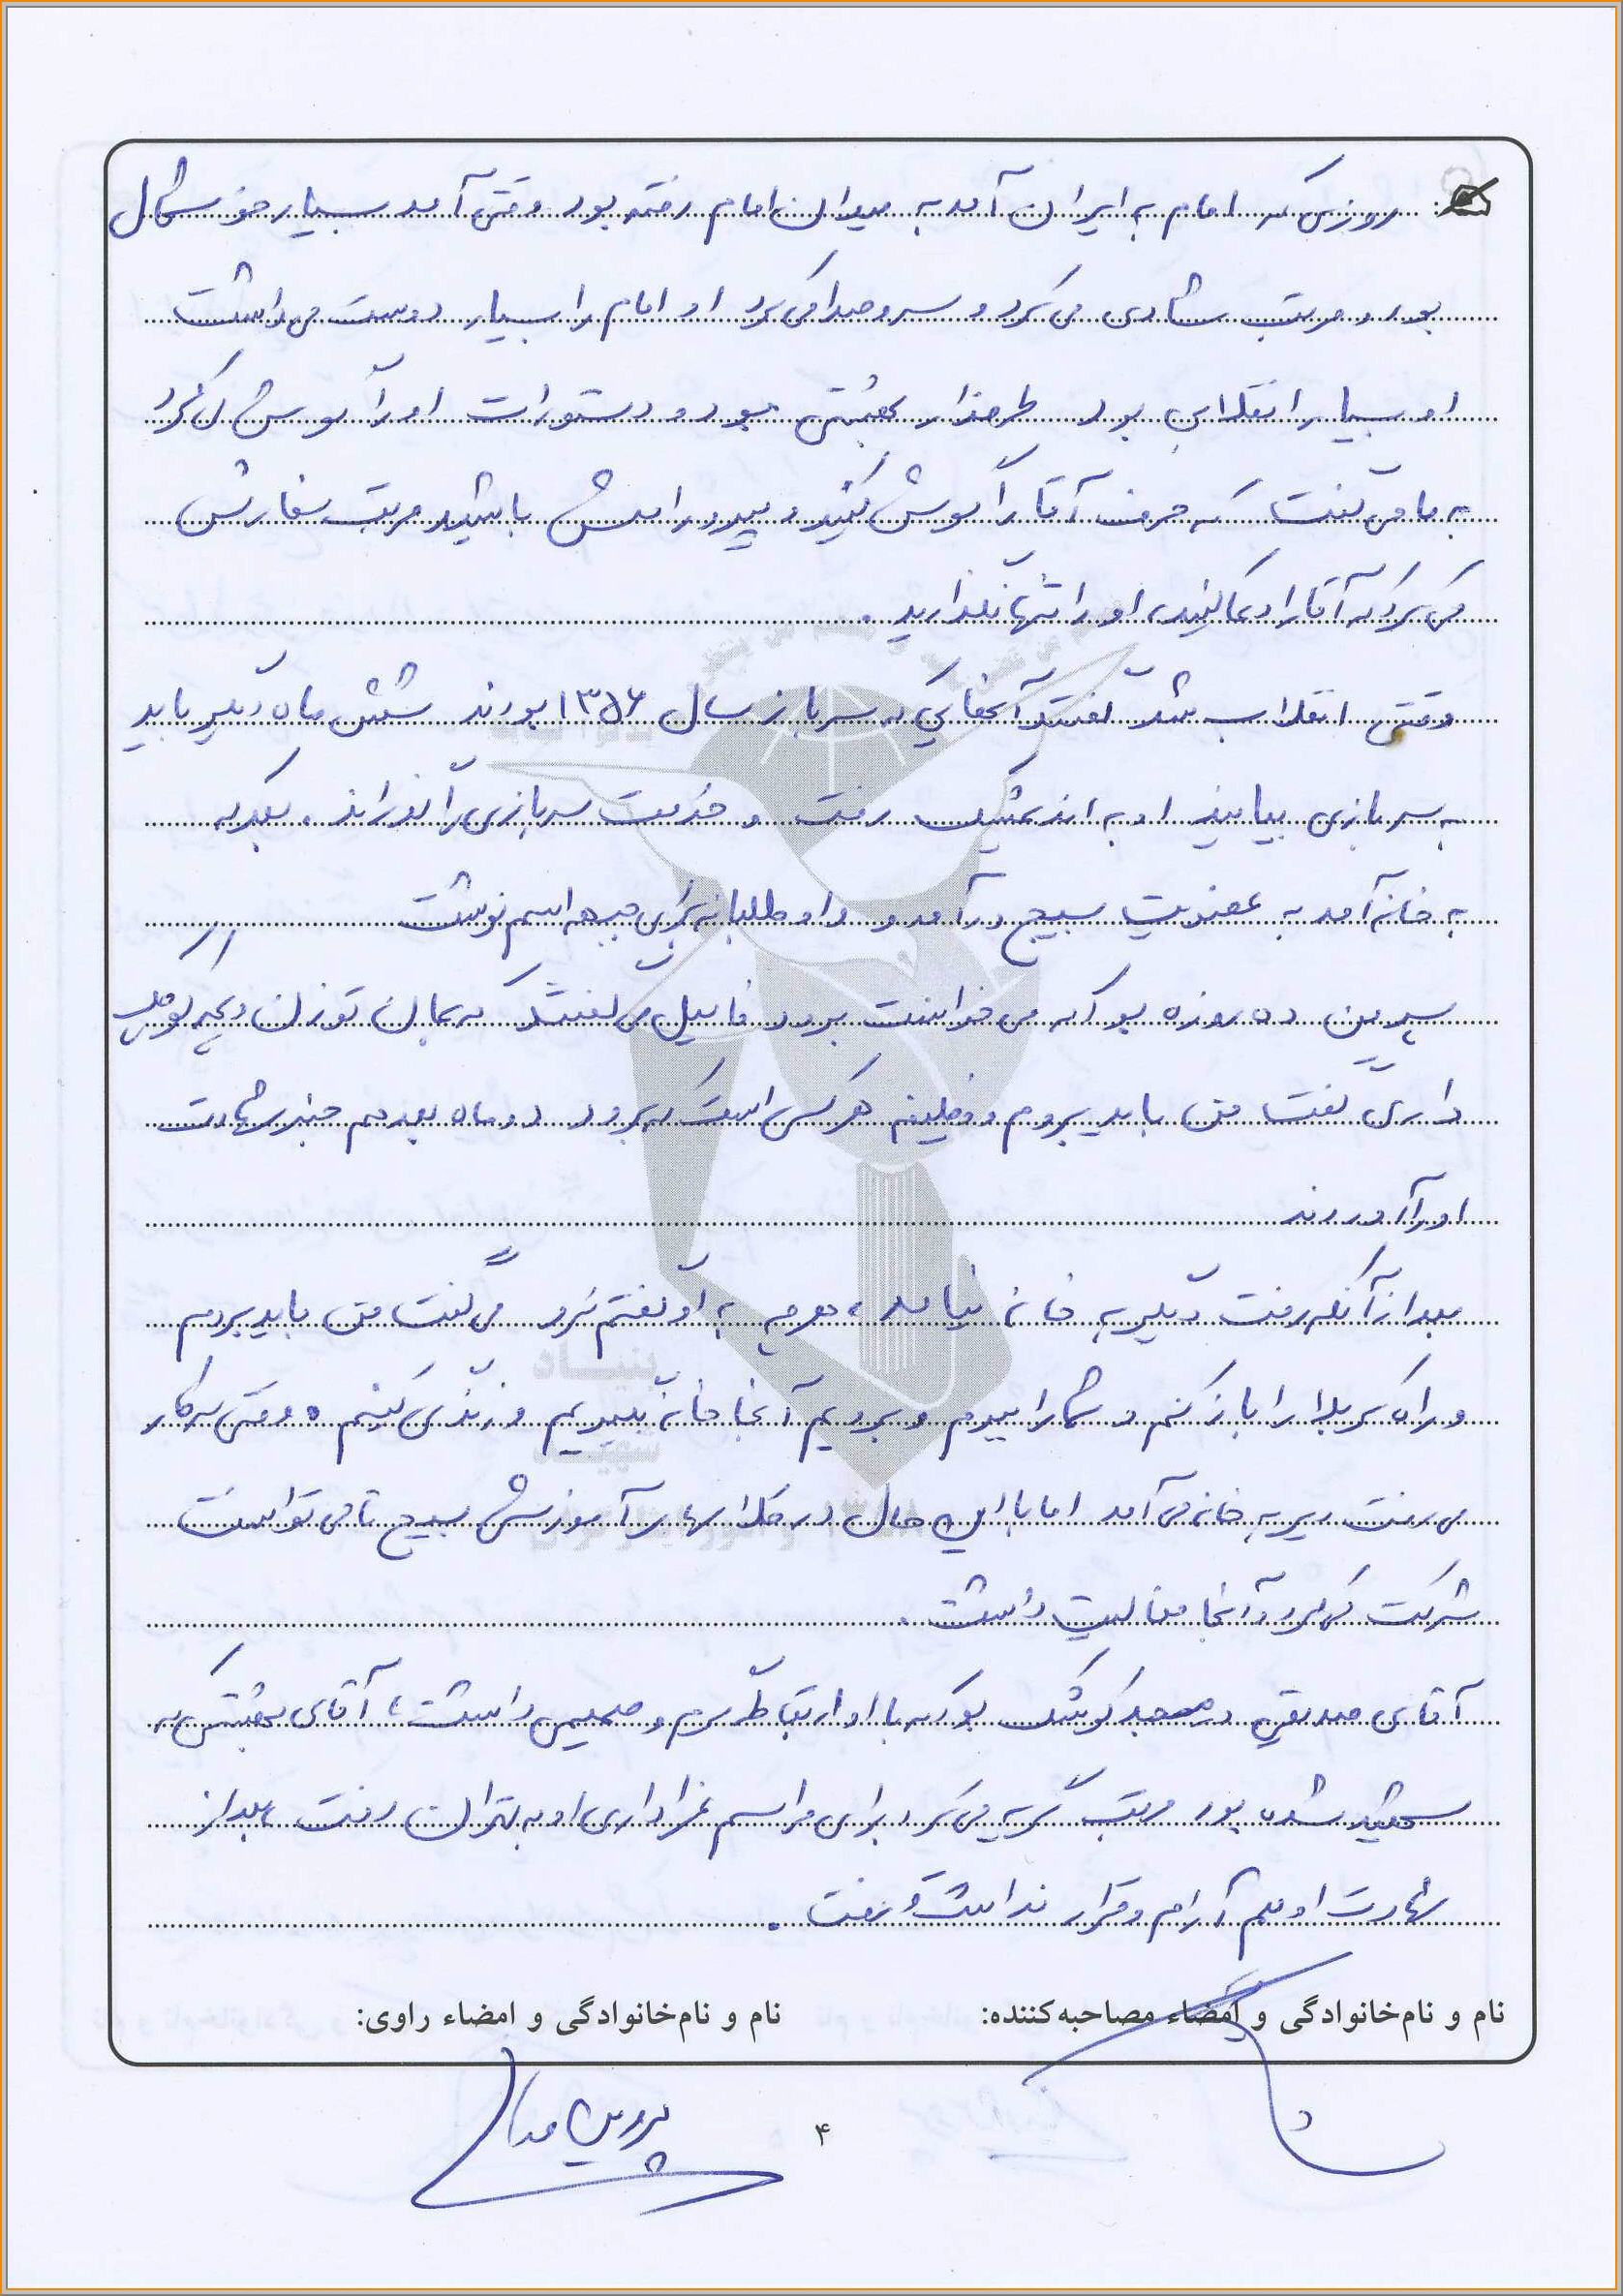 روزی که امام به ایران آمد به میدان امام رفته بود وقتی آمد بسیار خوشحال
بود و مرتب شادی می کرد و سر و صدا می کرد او امام را بسیار دوست می داشت
او بسیار انقلابی بود طرفدار بهشتی بود و دستورات او را گوش می کرد
به ما می گفت که حرف آقا را گوش کنید و پیرو راهش باشید مرتب سفارش
می کرد که آقا را دعا کنید، او را تنها نگذارید.
وقتی انقلاب شد گفتند آنهایی که سرباز سال ۱۳۵۶ بودند شش ماه دیگر باید
به سربازی بیایند او به اندیمشک رفت و خدمت سربازی را گذراند. بعد که
به خانه آمد به عضویت بسیج درآمد و داوطلبانه برای جبهه اسم نوشت
پسر من ده روزه بود که می خواست برود فامیل می گفتند که جمال تو زن و بچه کوچک
داری گفت من باید بروم وظیفه هر کس است که برود دو ماه بعد هم خبر شهادت
او را آوردند
بعد از آنکه رفت دیگر به خانه نیامد، هرچه به او گفتم نرو می گفت من باید بروم
و راه کربلا را باز کنم و شما را ببرم و برویم آنجا خانه بگیریم و زندگی کنیم. وقتی سر کار
می رفت دیر به خانه می آمد اما با این حال در کلاسهای آموزش بسیج تا می توانست
شرکت می کرد و آنجا فعالیت داشت.
آقای صدیقی در مسجد کوشک بود که با او ارتباط گرم و صمیمی داشت، آقای بهشتی که
شهید شده بود مرتب گریه می کرد برای مراسم عزاداری او به تهران رفت، بعد از
شهادت او هم آرام و قرار نداشت و رفت.
نام و نام‌خانوادگی و امضاء مصاحبه‌کننده:
نام و نام‌خانوادگی و امضاء راوی:
پروین
۴
بنیاد
شهید